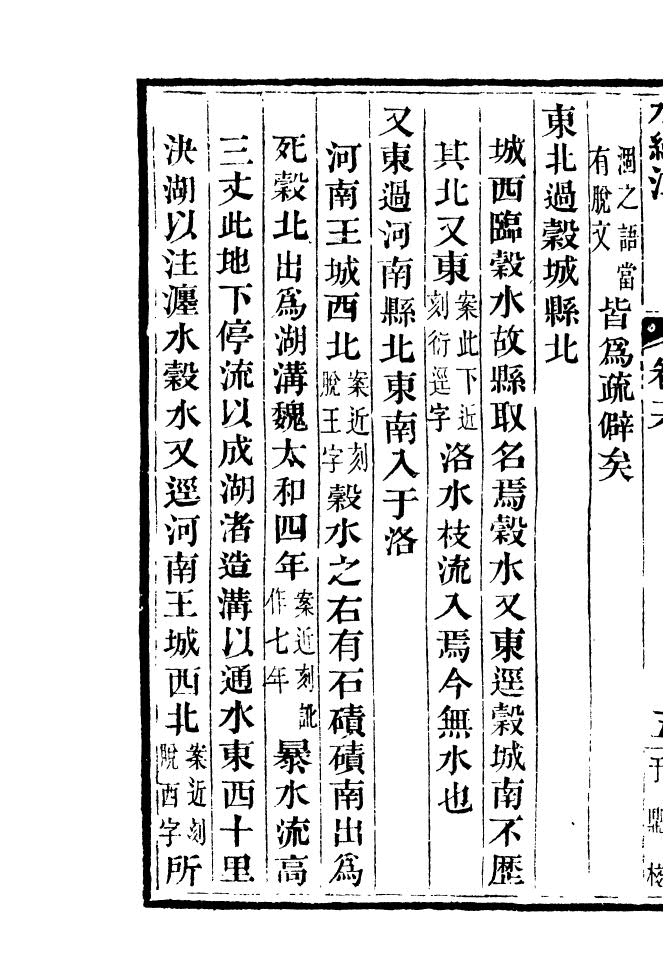 水經注 卷十六
澗之語當有脫文皆爲疏僻矣
東北過穀城縣北
城西臨穀水故縣取名焉穀水又東逕穀城南不歷
其北又東案此下近刻衍逕字洛水枝流入焉今無水也
又東過河南縣北東南入于洛
河南王城西北案近刻脫王字穀水之右有石磧磧南出爲
死穀北出爲湖溝魏太和四年案近刻訛作七年暴水流高
三丈此地下停流以成湖渚造溝以通水東西十里
決湖以注瀍水穀水又逕河南王城西北案近刻脫西字所